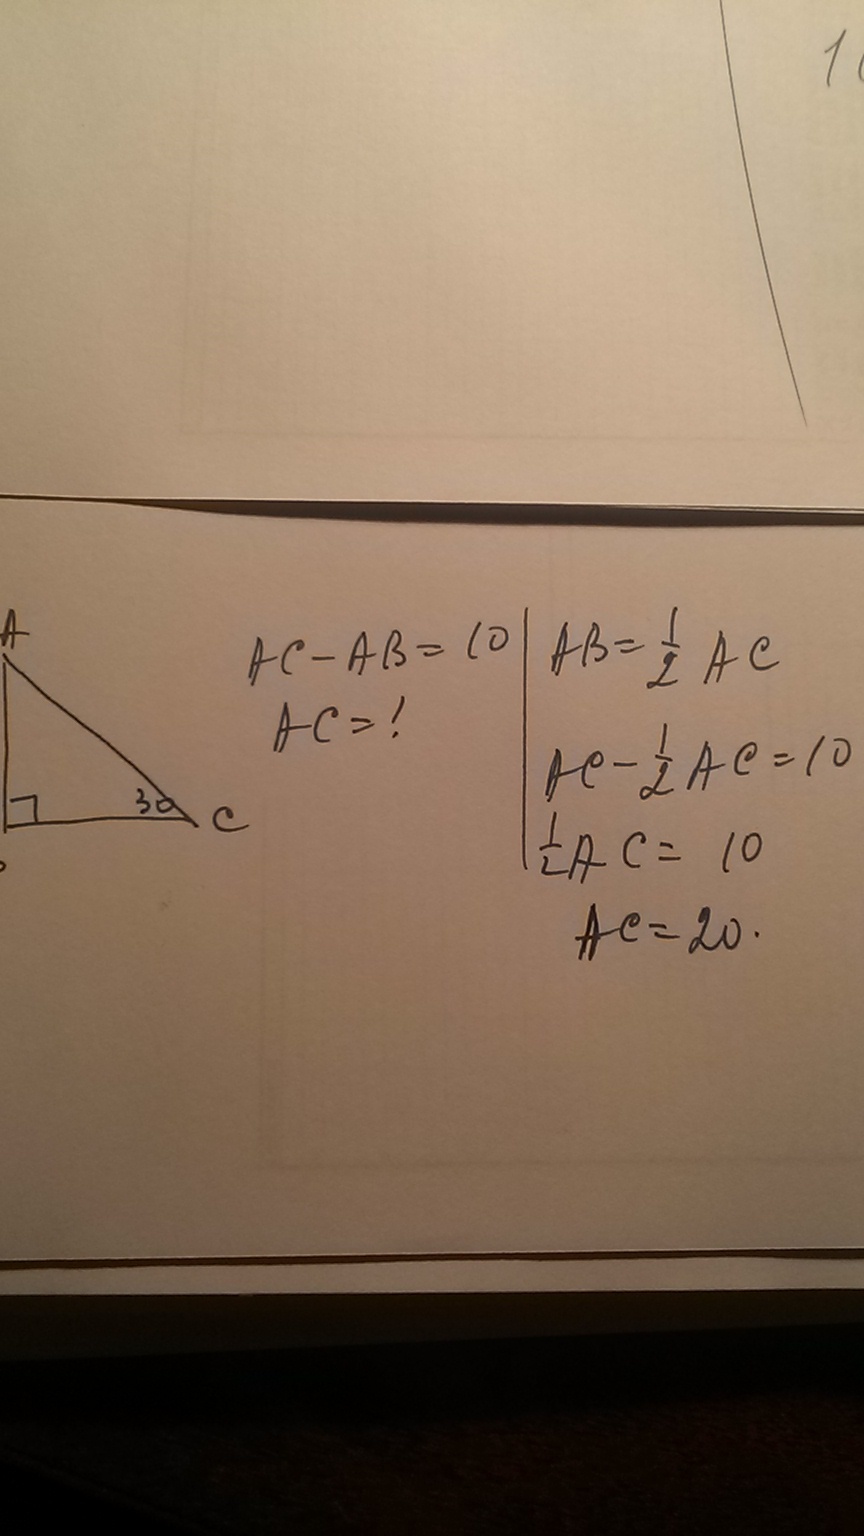 A
30
C
AC-AB=10
AC=!
AB=1/2 AC
AC-1/2 AC=10
1/2 AC=10
AC=20.